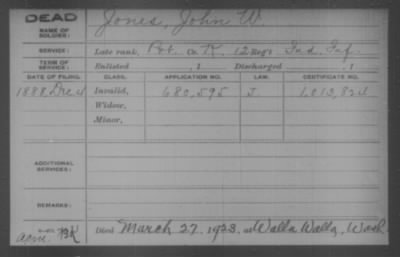 DEAD
NAME OF SOLDIER: Jones, John W.
SERVICE: Late rank, Pvt. Co. K. 12 Regt. Ind. Inf.
TERM OF SERVICE: Enlisted , 1 Discharged , 1
DATE OF FILING. CLASS. APPLICATION NO. LAW. CERTIFICATE NO.
1888, Dec 4 Invalid, 680,595 J. 1,013,824
Widow,
Minor,
ADDITIONAL SERVICES:
REMARKS:
Died March 27, 1923, at Walla Walla, Wash.